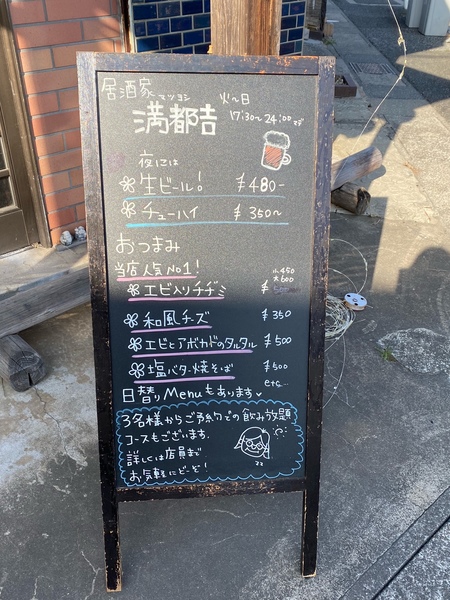 居酒家 マツヨシ 火〜日
満都吉 17:30〜24:00まで
夜には
生ビール! ¥480-
チューハイ ¥350〜
おつまみ
当店人気No1! 小450
大600
エビ入りチヂミ ¥
和風チーズ ¥350
エビとアボカドのタルタル ¥500
塩バター焼そば ¥500
etc...
日替りMenuもあります
3名様からご予約での飲み放題
コースもございます.
詳しくは店員まで
お気軽にどーぞ!